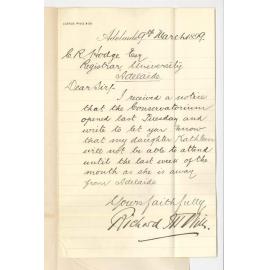 Adelaide 9th March 1899.
C. R. Hodge Esq
Registrar University
Adelaide
Dear Sir,
I received a notice
that the Conservatorium
opened last Tuesday and
write to let you know
that my daughter Kathleen
will not be able to attend
until the last week of the
month as she is away
from Adelaide
Yours faithfully,
Richard